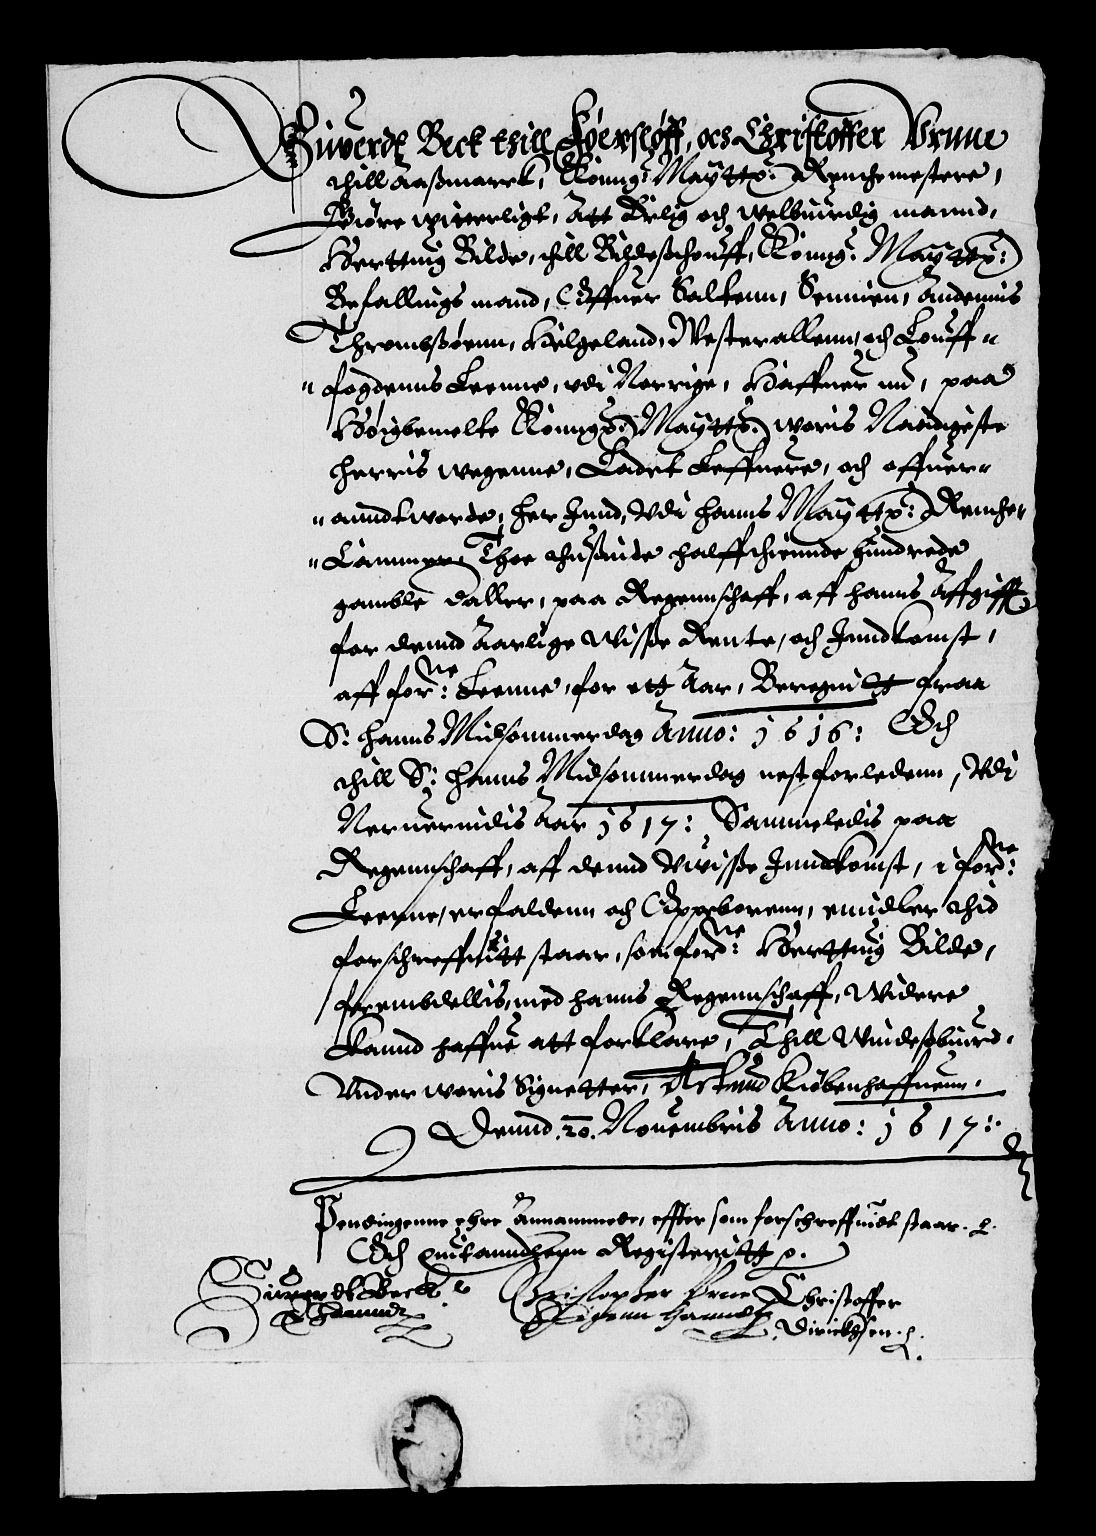 Siuerdt Beck thill Føersløff, och Christoffer Vrnne
thill Aaßmarck, Konng: Maytts: Rentchemestere,
Giøre witterligt, Att Erlig och welbiurdig mannd,
Herttuig Bilde, thill Bildeßchouff, Konng: Maytts:
Befallings mand, Offuer Saltenn, Sennien, Andennis
Thrombßøenn, Helgeland, Westerallenn, och Louff-
-fogdenns Leenne, vdi Norrige, Haffuer nu, paa
Høigbemelte Konng: Maytts: woris Naadigeste
herris wegenne, Ladet Leffuere, och offuer-
-anndtworde, her Innd, Vdi hanns Maytts: Rentche-
-Cammer, Thoe thußinde halffthiennde hundrede
gamble daller, paa Regennschaff, aff hanns Affgifft
for dennd Aarlige Wisße Rente, och Inndkomst,
aff for:ne Leenne, for ett Aar, Beregnitt fraa
St: Hanns Midsommerdag Anno: 1616: Och
thill St: Hanns Midsommerdag nest forledenn, Vdi
Neruerindis Aar 1617: Sammeledis paa
Regennschaff, aff dennd Vuisße Inndkomst, i for:ne
Leenne, erfaldenn och Oppeborenn, emidler thid
forschreffuitt staar, som for:ne Herttuig Bilde,
frembdellis, med hanns Regennschaff, Widere
kannd haffue att forklare, Thill Windeßbiurd,
Vnder woris Signetter, Actumd Kiøbenhaffuenn,
Dennd .20. Nouembris Anno: 1617:.
Pendingenne ehre Annammede, effter som forschreffuidt staar.
Och quitanndtzenn Registeritt p.
Siuerdt Beck Christopher Vrne Christoffer
Hannd Eigenn Hanndt Dirichsen.